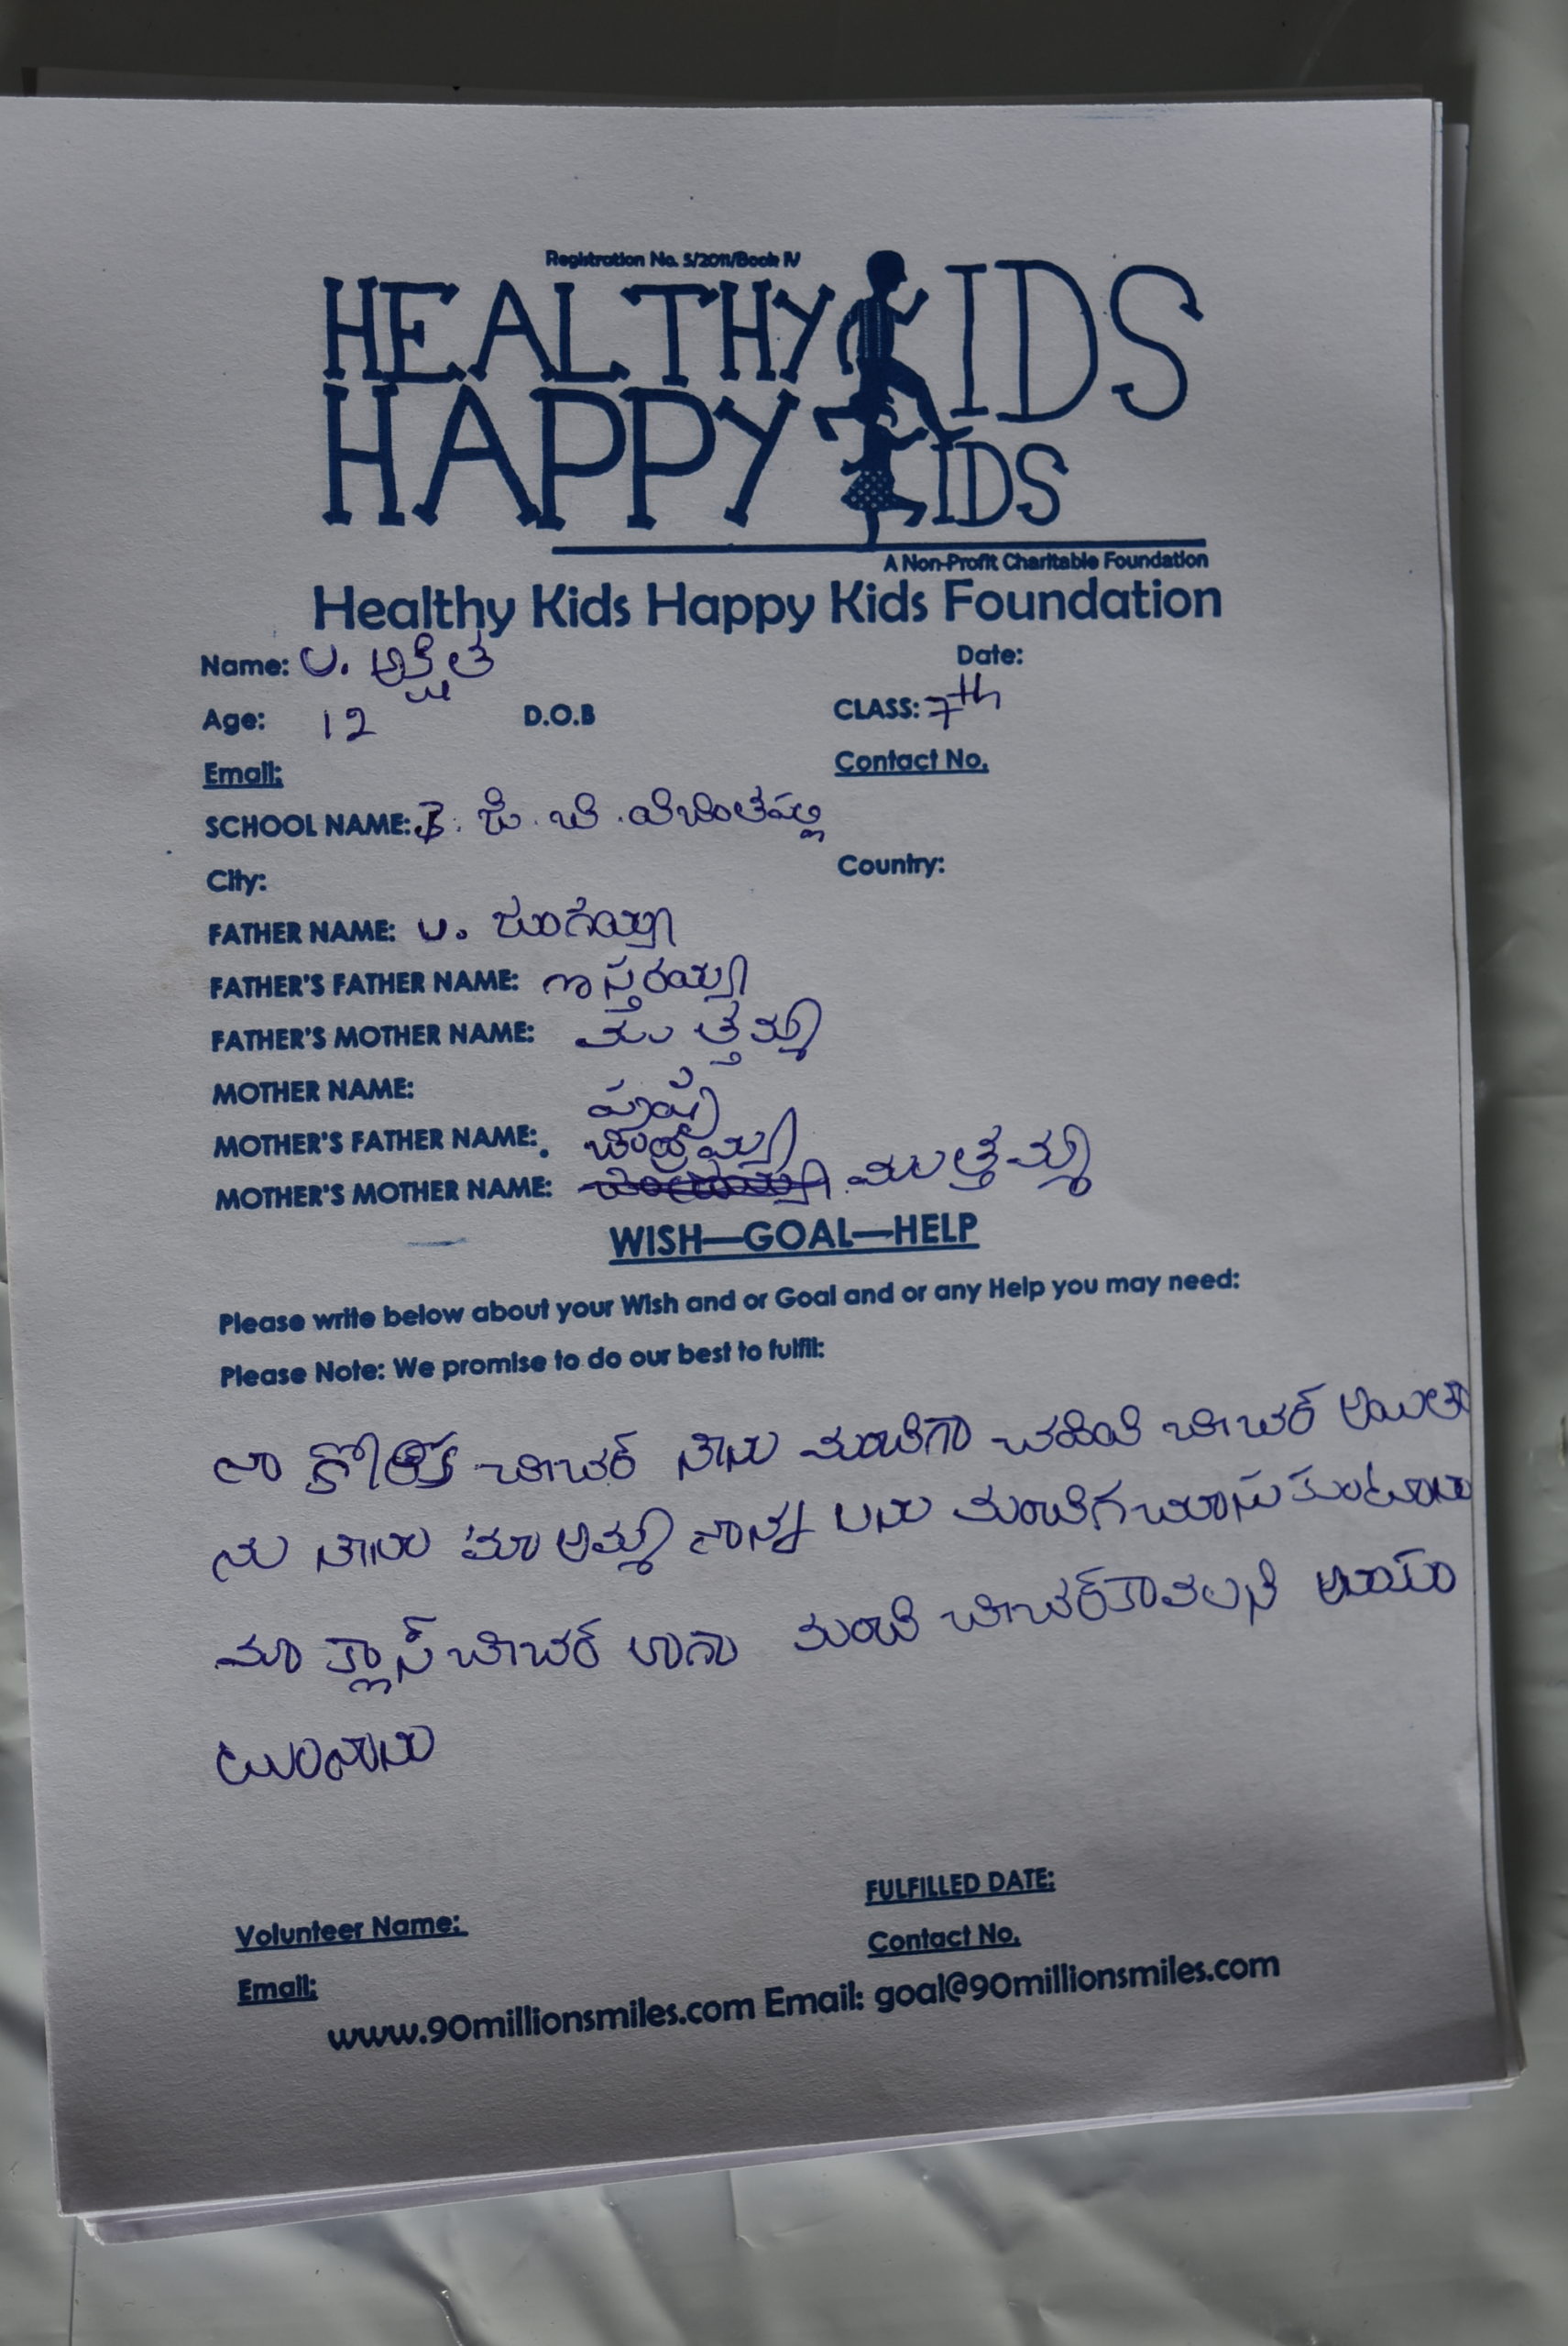 Registration No. 5/2011/Book IV
HEALTHY KIDS
HAPPY KIDS
A Non-Profit Charitable Foundation
Healthy Kids Happy Kids Foundation
Name: U. అక్షిత Date:
Age: 12 D.O.B CLASS: 7th
Email: Contact No.
SCHOOL NAME: జి. బి.
City: Country:
FATHER NAME: U.
FATHER'S FATHER NAME:
FATHER'S MOTHER NAME: ముత్తమ్మ
MOTHER NAME: పుష్ప
MOTHER'S FATHER NAME: చంద్రయ్య
MOTHER'S MOTHER NAME: ముత్తమ్మ
WISH—GOAL—HELP
Please write below about your Wish and or Goal and or any Help you may need:
Please Note: We promise to do our best to fulfil:
నా కోరిక టీచర్ నేను మంచిగా చదివి టీచర్ అయితా
ను నేను మా అమ్మ నాన్న లను మంచిగ చూసుకుంటాను
మా క్లాస్ టీచర్ లాగా మంచి టీచర్ కావలని
Volunteer Name: FULFILLED DATE:
Email: Contact No.
www.90millionsmiles.com Email: goal@90millionsmiles.com